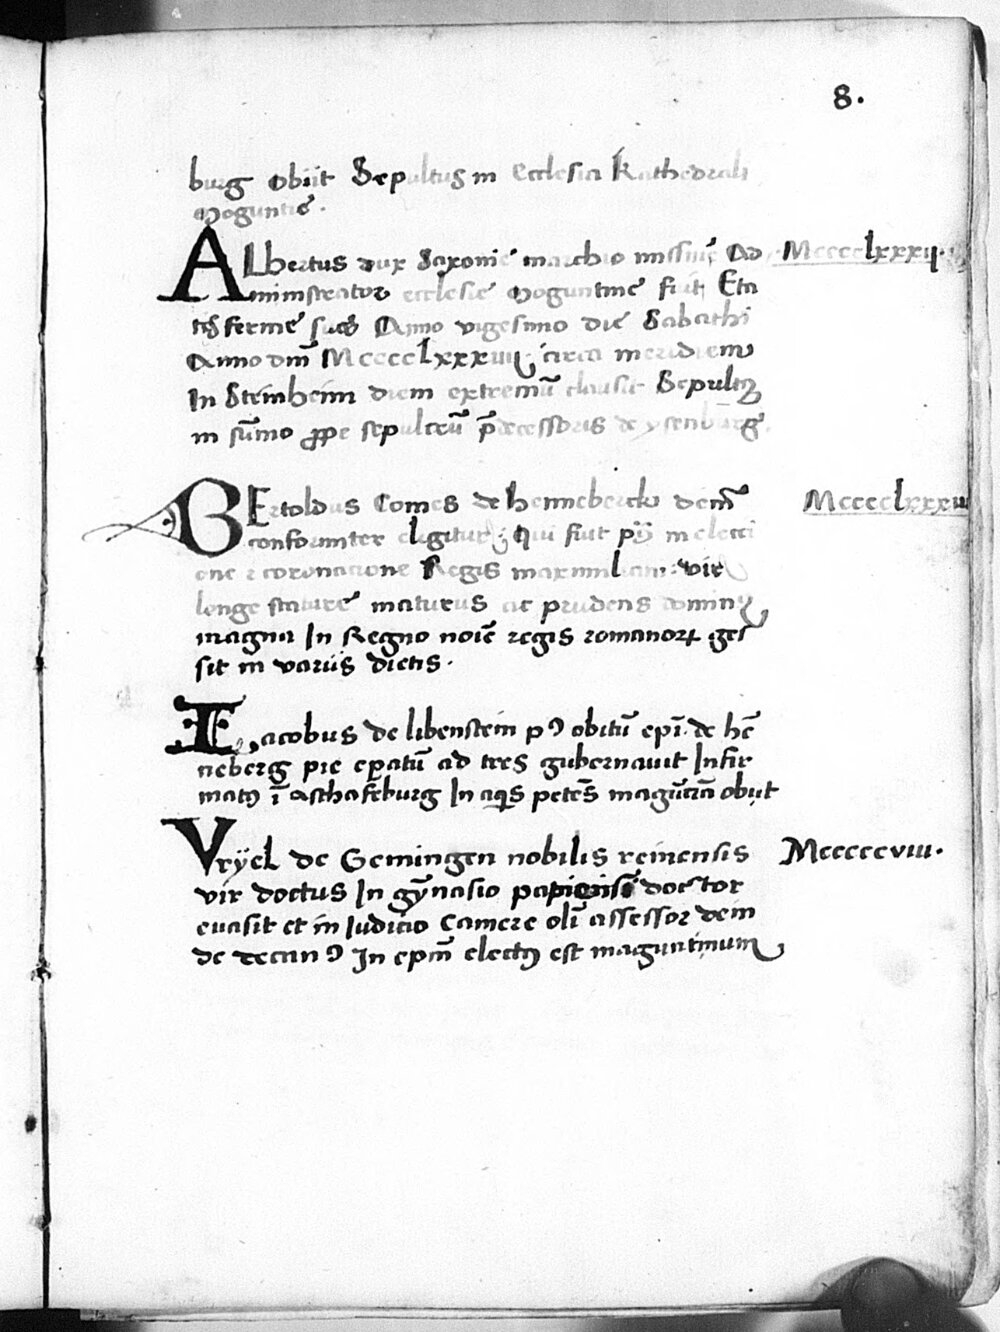 8.
burg obiit Sepultus in Ecclesia Kathedrali
Moguntiē.
ALbertus dux Saxonie marchio missnē Ad Mccccлxxxij.
ministrator ecclesie Moguntine fuit Eta
tis ferme sue Anno vigesimo die Sabathi
Anno dm̄ Mcccclxxxiiij circa meridiem
In Steinheim diem extremū clausit Sepultꝯ
in sūmo ꝓpe sepulcrū p̄decessoris de ysenbūrg.
BErtoldus Comes de hennebercki dem̄
conformiter eligitur; Qui fuit p̄ñs in electi
one ⁊ coronatione Regis maximiliani. vir
longe stature maturus ac prudens
magna In Regno noīe regis romanoꝝ ges
sit in variis dietis.
Iacobus de libenstein pꝰ obitū epī de hē
neberg pie ep̄atū ad tres gubernavit Infir
matꝯ ī aschafēburg In aq̄s petēs magūciā obijt
Vrÿel de Gemingen nobilis reinensis Mcccccviii.
vir doctus In gȳnasio papiensi doctor
evasit et in Iudicio Camere oli᷑ assessor dein
de decanꝰ In epm̄ electꝯ est maguntinum